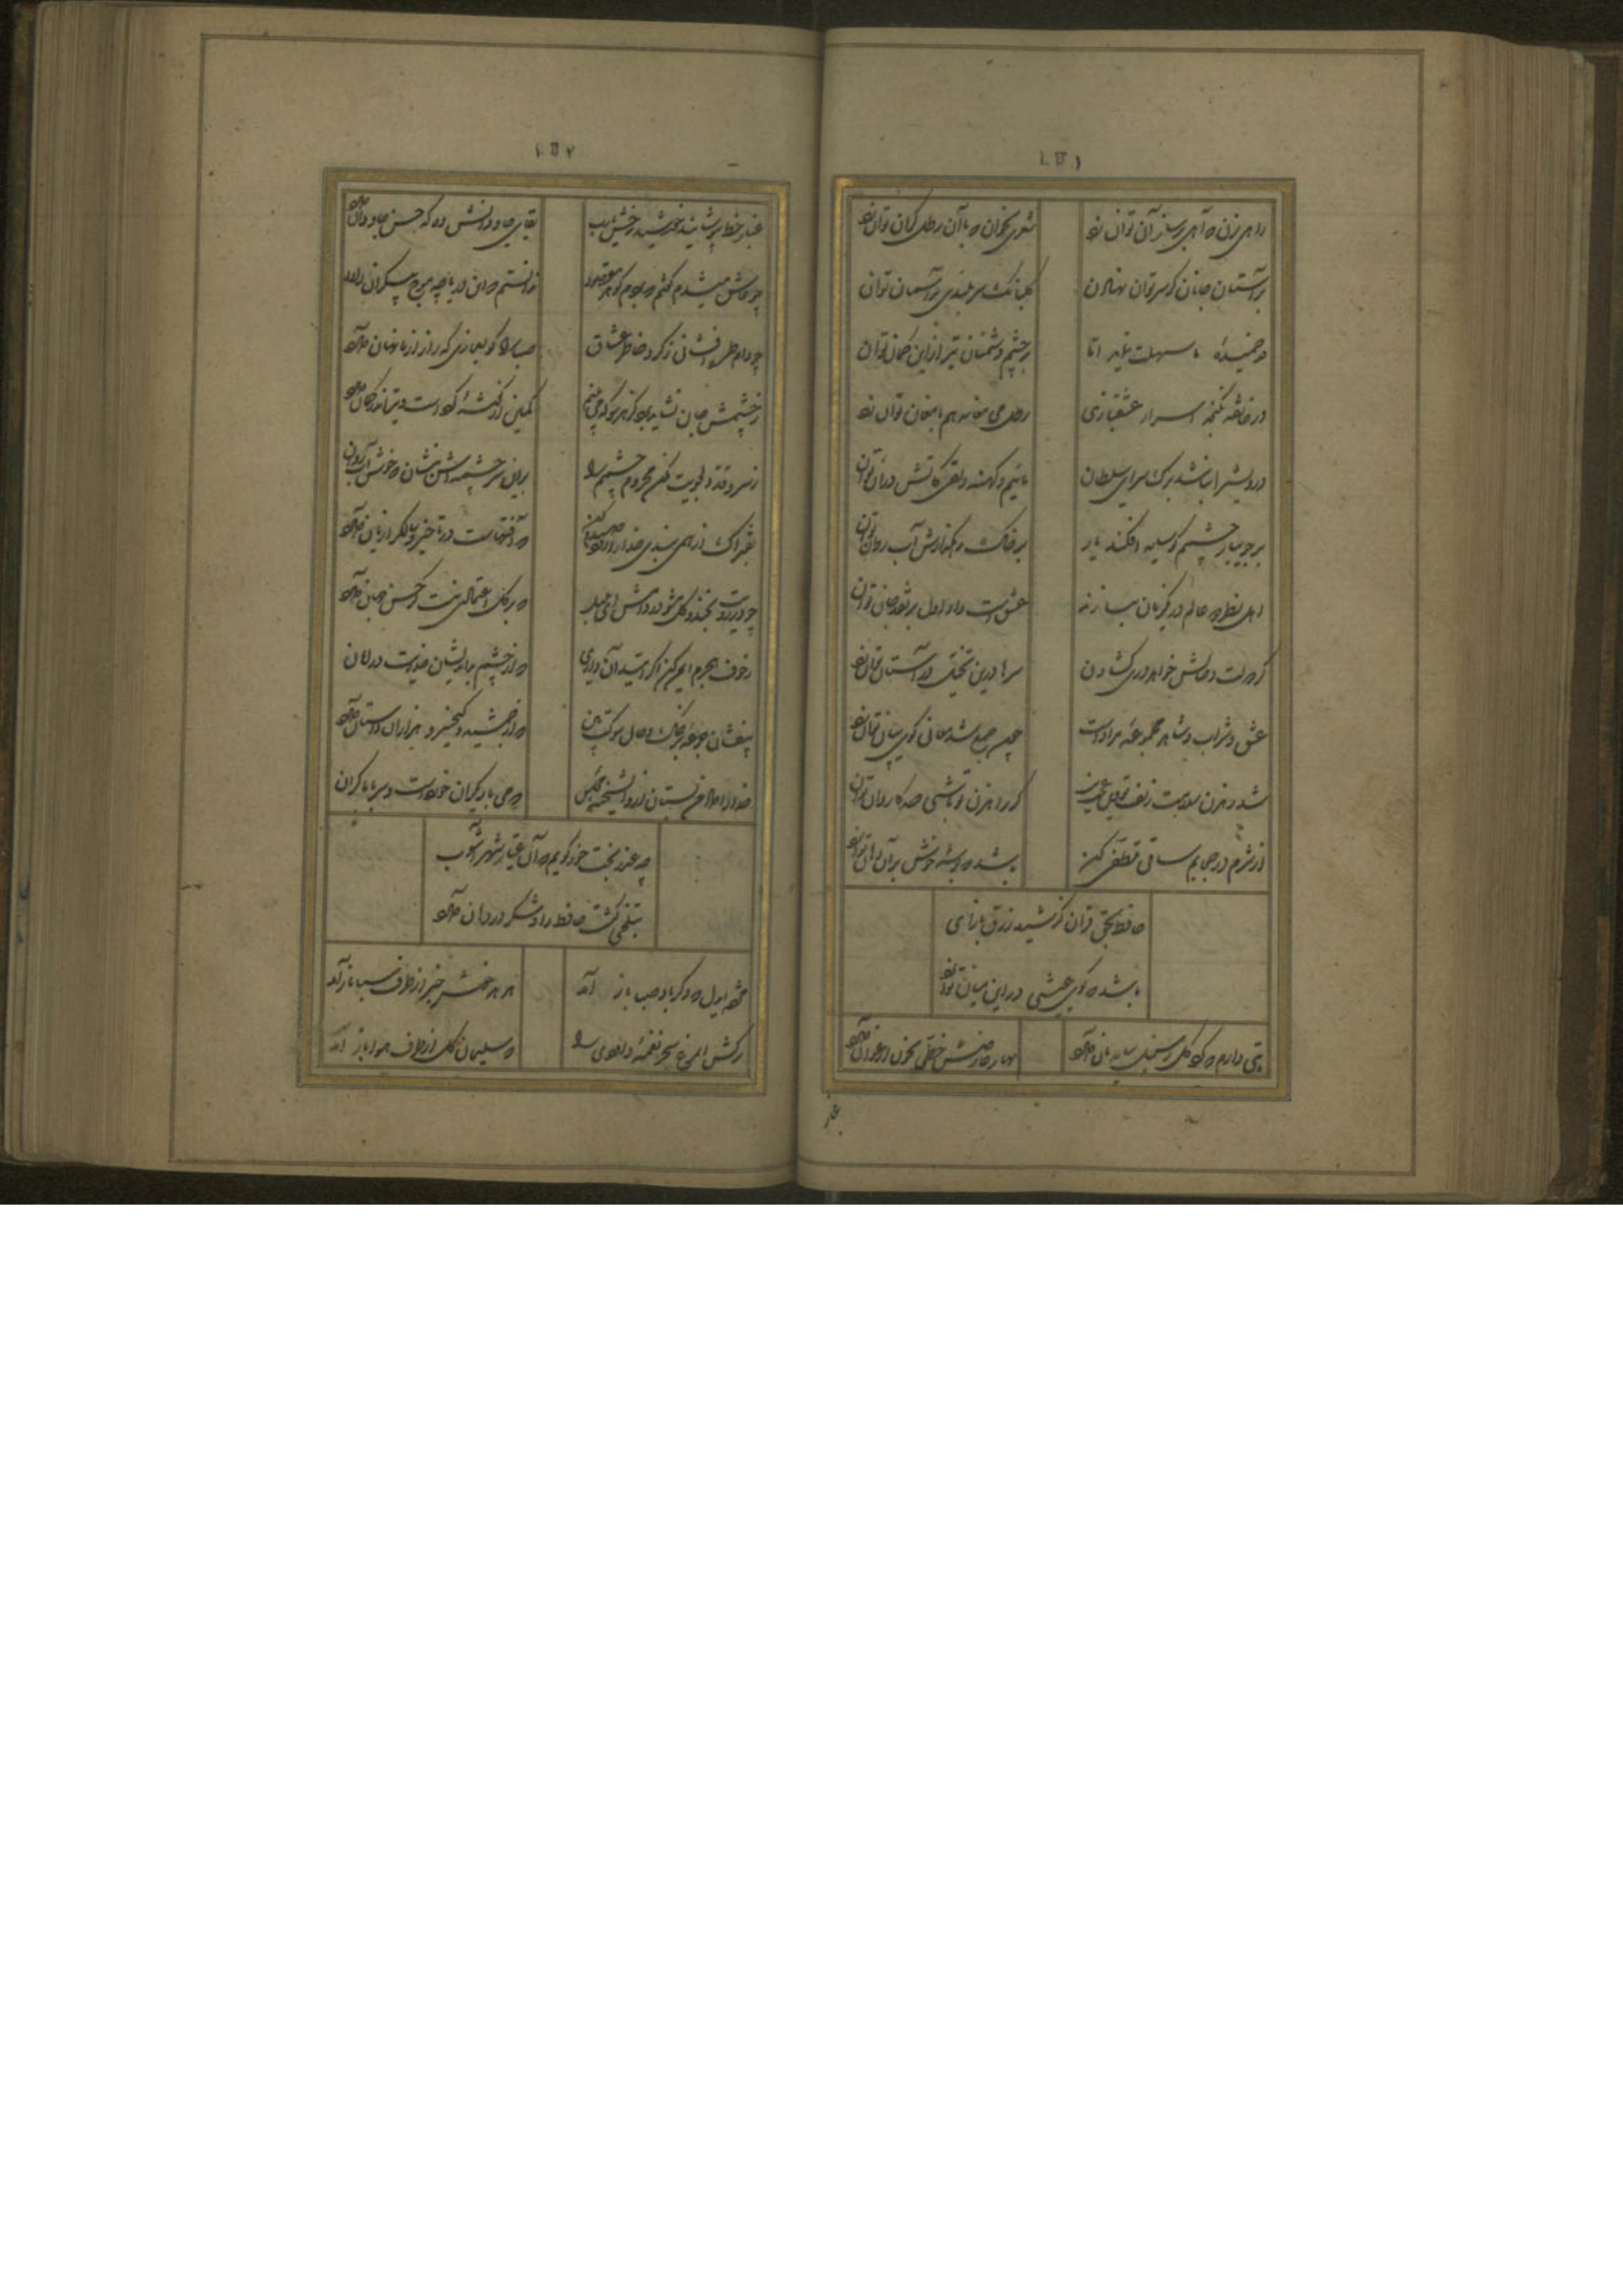 ۱۵۱
راهی بزن که آهی بر ساز آن توان زد
شعری بخوان که با آن رطل گران توان زد
بر آستان جانان گر سر توان نهادن
گلبانگ سر بلندی بر آسمان توان
قد خمیده ما سهلت نماید اما
بر چشم دشمنان تیر از این کمان توان
در خانقه نگنجد اسرار عشقبازی
رطل می مغانه هم با مغان توان زد
درویش را نباشد برگ سرای سلطان
مائیم و کهنه دلقی کاتش در آن توان
بر جویبار چشمم گر سایه افکند یار
بر خاک رهگذارش آب روان توان
اهل نظر دو عالم در یک زبان ببازند
عشق است و داو اول بر نقد جان توان
گر دولت وصالش خواهد دری گشادن
سرها درین تخیل در آستان توان زد
عشق و شراب و شاهد مجموعه مراد است
چون جمع شد معانی گوی بیان توان زد
شد رهزن سلامت زلف تو وین عجب نیست
گر راهزن تو باشی صد کاروان توان
از شرم در حجابم ساقی تلطفی کن
باشد که بوسه خوش بر آن دهان توان زد
حافظ بحق قرآن کز شید و زرق بازآی
باشد که گوی عیشی در این میان توان زد
بتی دارم که گرد گل ز سنبل سایه بان دارد
بهار عارضش خطی بخون ارغوان دارد
غبار
۱۵۲
غبار خط بپوشانید خورشید رخش یا رب
بقای جاودانش ده که حسن جاودان دارد
چو عاشق میشدم گفتم که بردم گوهر مقصود
ندانستم که این دریا چه موج بیکران دارد
چو دام طره افشاند ز گرد خاطر عشاق
بغماز صبا گوید که راز ما نهان دارد
ز چشمش جان نشاید برد کز هر سو که می بینم
کمین از گوشه کرده است و تیر اندر کمان دارد
ز سرو قد دلجویت مکن محروم چشمم را
بدین سرچشمه اش بنشان که خوش آب روان
بفتراک ار همی بندی خدا را زود صیدم کن
که آفتهاست در تاخیر و طالب را زیان دارد
چو در رویت بخندد گل مشو در دامش ای بلبل
که بر گل اعتمادی نیست گر حسن جهان دارد
ز خوف هجرم ایمن کن اگر امید آن داری
که از چشم بداندیشان خدایت در امان
بیفشان جرعه بر خاک و حال شوکت بین
که از جمشید و کیخسرو هزاران داستان دارد
خدا را داد من بستان ازو ای شحنه مجلس
که می با دیگران خورده است و سر با ما گران
چه عذر بخت خود گویم که آن عیار شهر آشوب
بتلخی کشت حافظ را و شکر در دهان دارد
مژده ای دل که دگر باد صبا باز آمد
هدهد خوش خبر از طرف سبا باز آمد
برکش ای مرغ سحر نغمه داودی را
که سلیمان گل از طرف هوا باز آمد